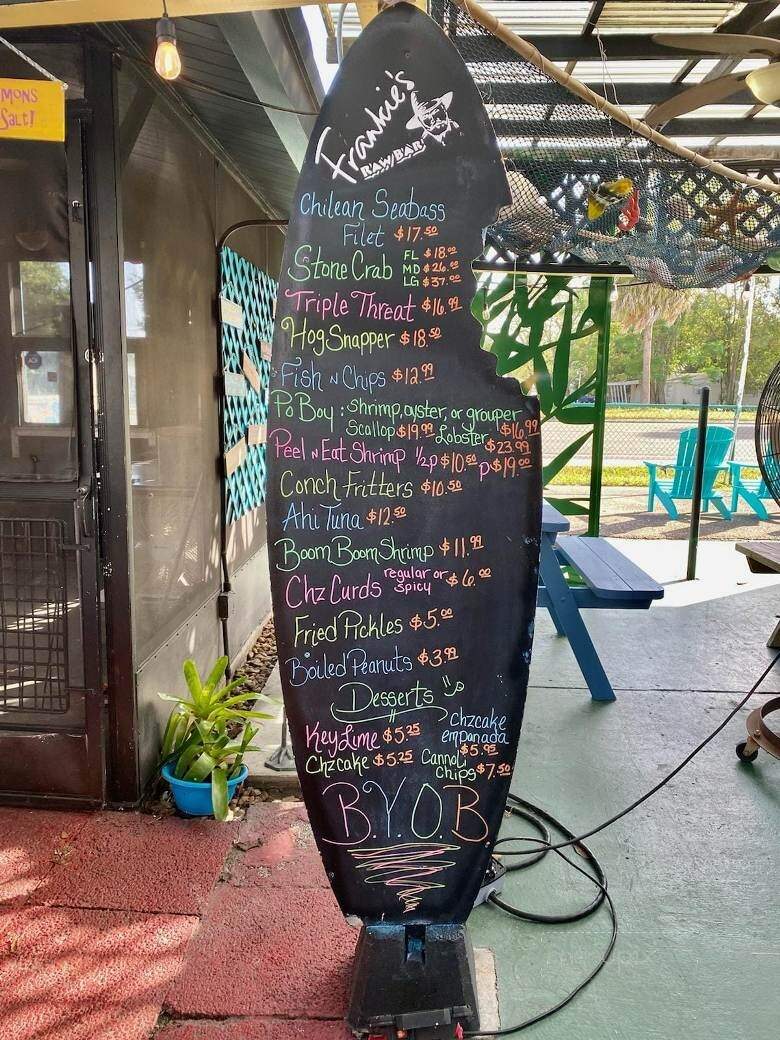 MONS
SALT!
Frankie's
RAW BAR
Chilean Seabass
Filet $17.50
Stone Crab FL $18.00
MD $26.00
LG $37.00
Triple Threat $16.99
Hog Snapper $18.50
Fish N Chips $12.99
Po Boy: shrimp, oyster, or grouper $16.99
Scallop $19.99 Lobster $23.99
Peel N Eat Shrimp 1/2p $10.50 p $19.00
Conch Fritters $10.50
Ahi Tuna $12.50
Boom Boom Shrimp $11.99
Chz Curds regular or spicy $6.00
Fried Pickles $5.00
Boiled Peanuts $3.99
Desserts
Key Lime $5.25
Chzcake empanada $5.95
Chzcake $5.25
Cannoli Chips $7.50
B.Y.O.B